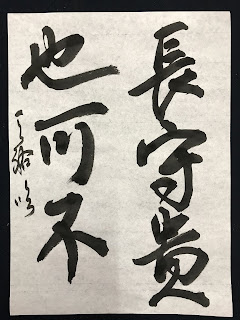 長守貴
也可不